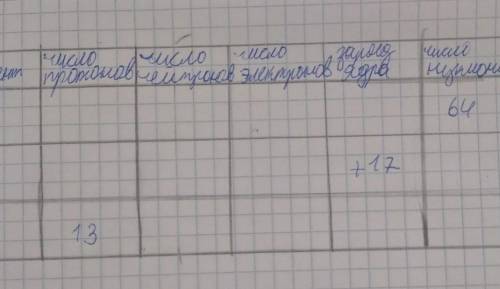 число число число заряд число
протонов нейтронов электронов ядра
64
+17
13